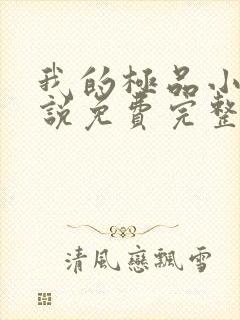 我的極品小
說免費完整
清風戀飄雪